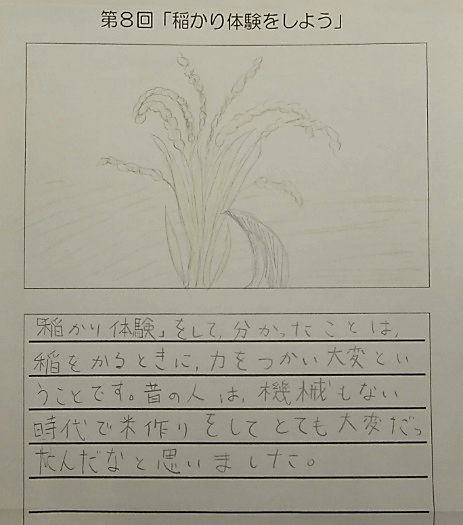 第8回「稲かり体験をしよう」
「稲かり体験」をして、分かったことは、
稲をかるときに、力をつかい大変とい
うことです。昔の人は、機械もない
時代で米作りをしてとても大変だっ
たんだなと思いました。